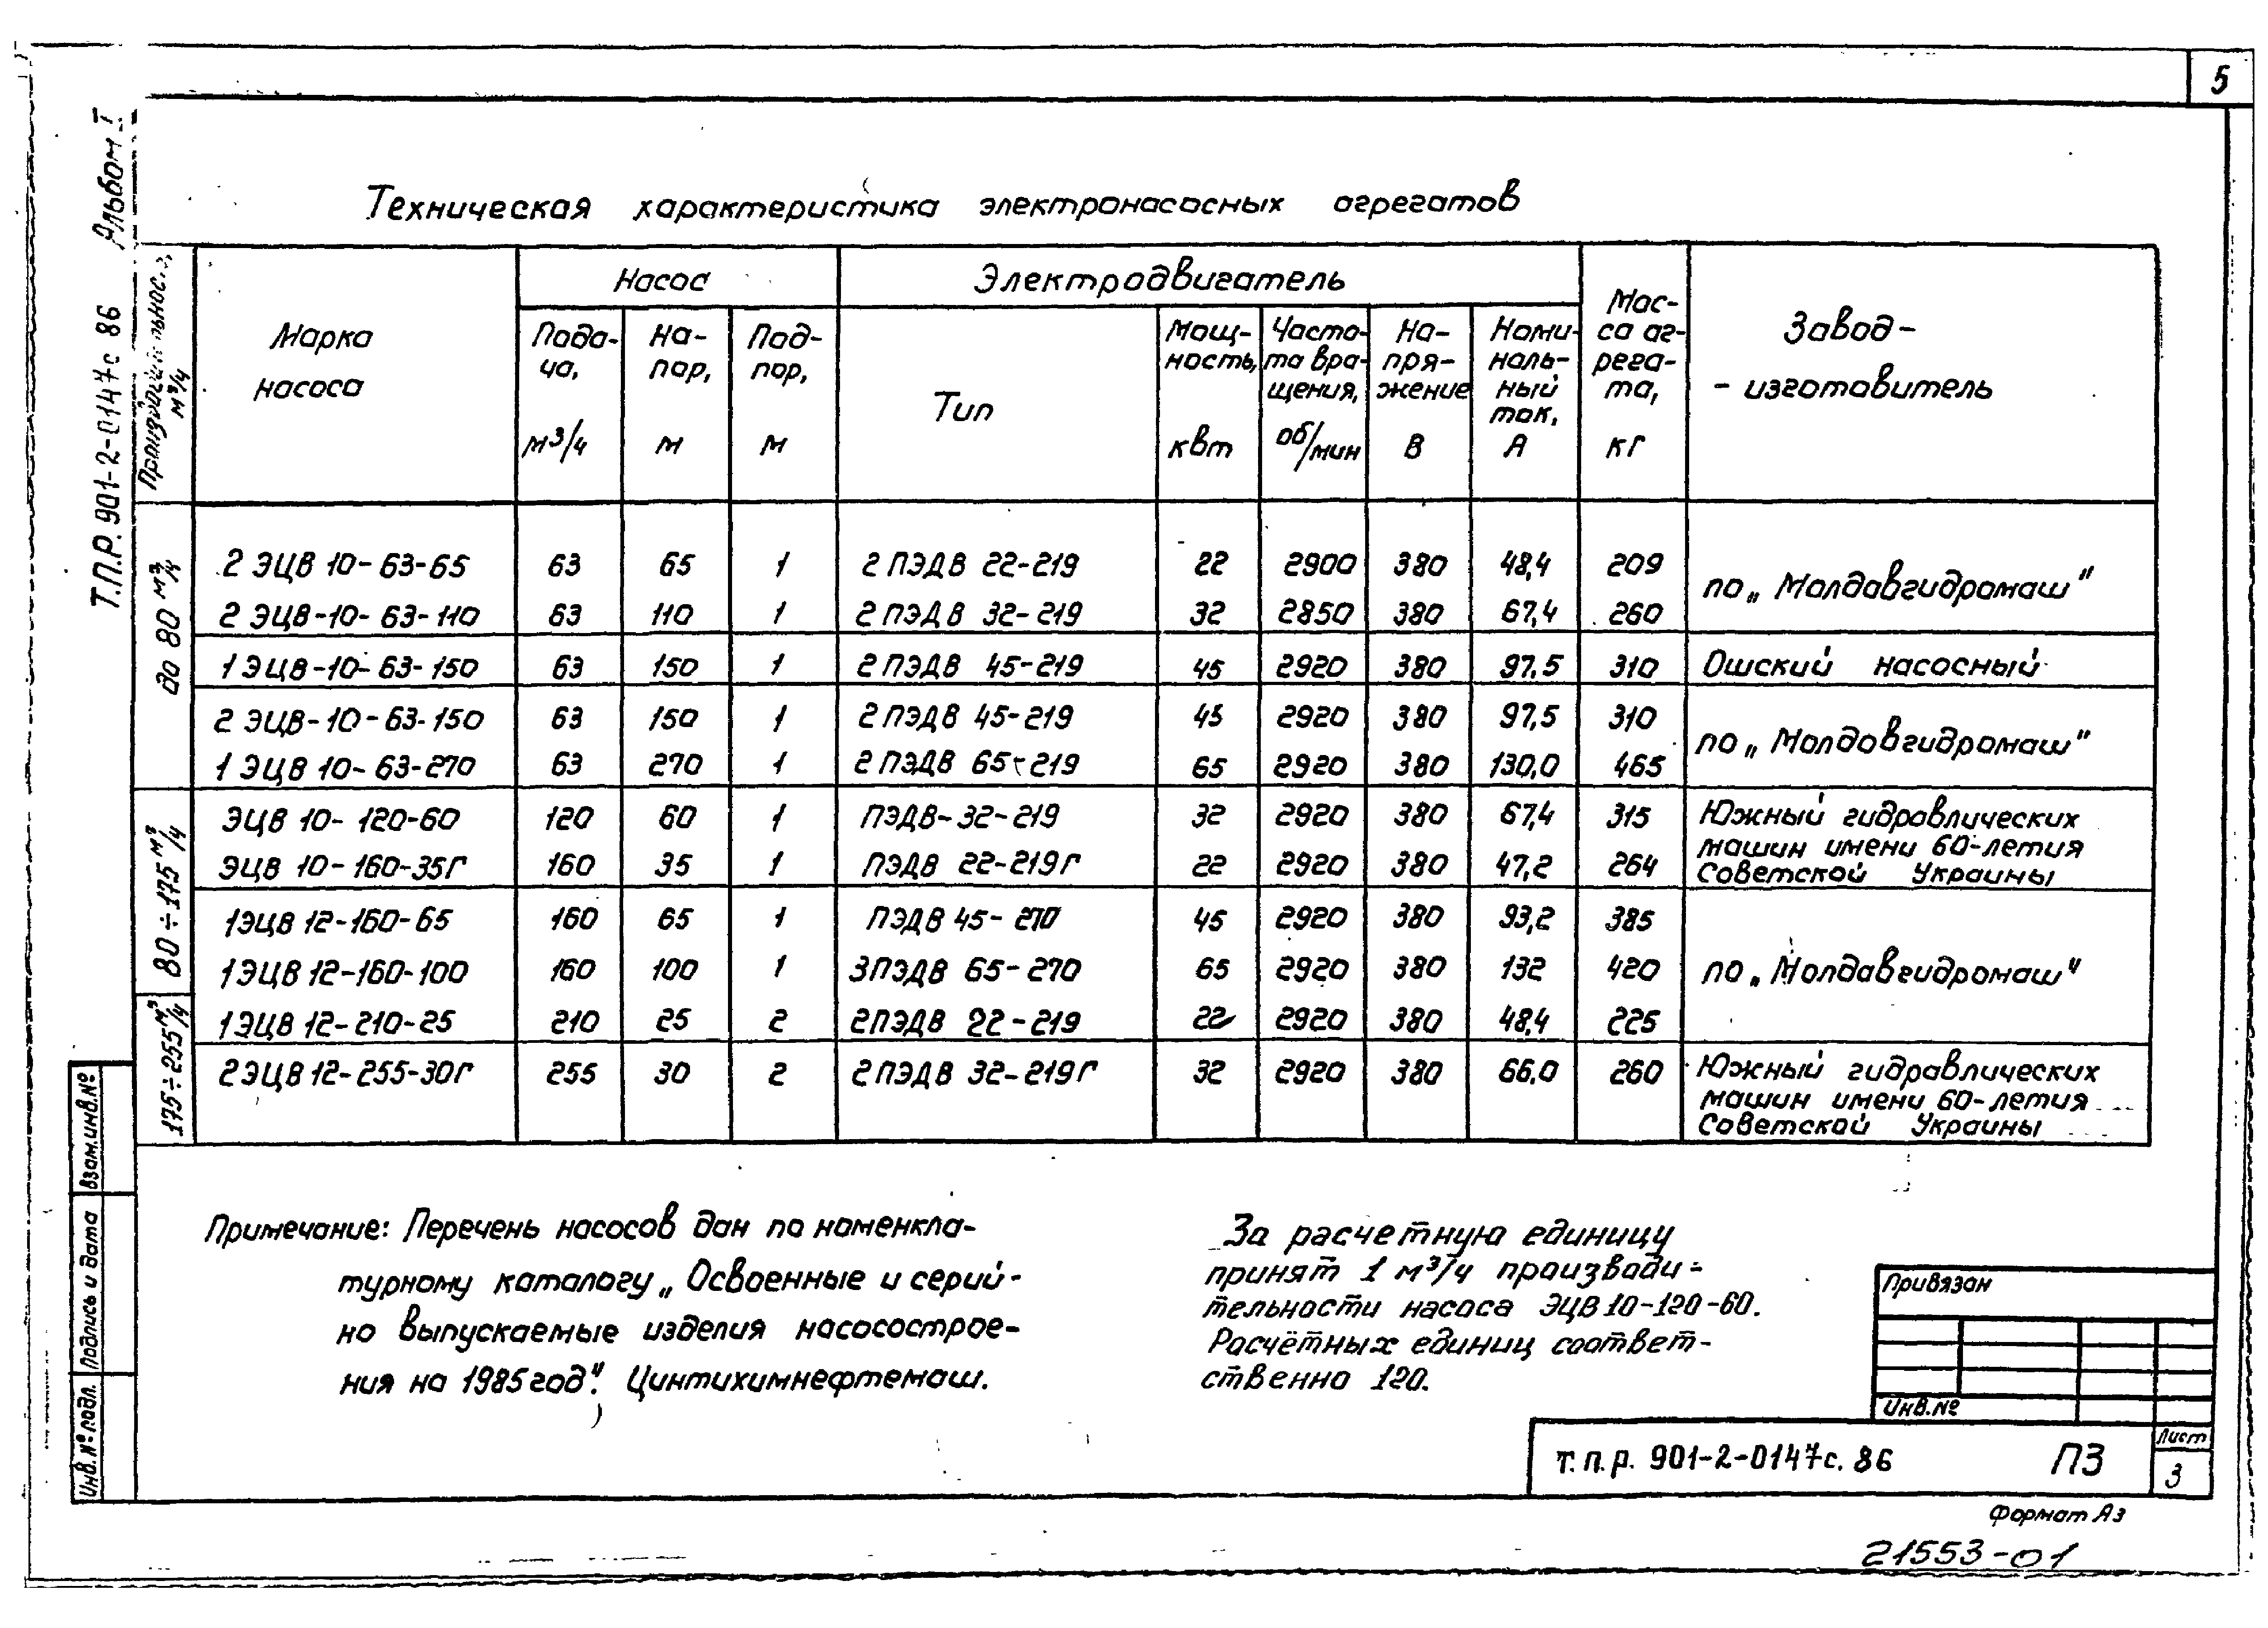 5
Альбом I
Т.П.Р. 901-2-0147с 86
Техническая характеристика электронасосных агрегатов
Производительность, м³/ч
Марка насоса
Насос
Электродвигатель
Масса агрегата, кг
Завод-
-изготовитель
Подача, м³/ч
Напор, м
Подпор, м
Тип
Мощность, квт
Частота вращения, об/мин
Напряжение В
Номинальный ток, А
до 80 м³/ч
2 ЭЦВ 10-63-65 63 65 1 2 ПЭДВ 22-219 22 2900 380 48,4 209 по „Молдавгидромаш"
2 ЭЦВ-10-63-110 63 110 1 2 ПЭДВ 32-219 32 2850 380 67,4 260
1 ЭЦВ-10-63-150 63 150 1 2 ПЭДВ 45-219 45 2920 380 97.5 310 Ошский насосный
2 ЭЦВ-10-63-150 63 150 1 2 ПЭДВ 45-219 45 2920 380 97,5 310 по „Молдовгидромаш"
1 ЭЦВ 10-63-270 63 270 1 2 ПЭДВ 65-219 65 2920 380 130,0 465
80÷175 м³/ч
ЭЦВ 10-120-60 120 60 1 ПЭДВ-32-219 32 2920 380 67,4 315 Южный гидравлических
машин имени 60-летия
ЭЦВ 10-160-35Г 160 35 1 ПЭДВ 22-219Г 22 2920 380 47,2 264 Советской Украины
1ЭЦВ 12-160-65 160 65 1 ПЭДВ 45-270 45 2920 380 93,2 385
1ЭЦВ 12-160-100 160 100 1 3ПЭДВ 65-270 65 2920 380 132 420 по „Молдавгидромаш"
175÷255 м³/ч
1ЭЦВ 12-210-25 210 25 2 2ПЭДВ 22-219 22 2920 380 48,4 225
2ЭЦВ 12-255-30Г 255 30 2 2ПЭДВ 32-219Г 32 2920 380 66,0 260 Южный гидравлических
машин имени 60-летия
Советской Украины
Примечание: Перечень насосов дан по номенкла-
турному каталогу „Освоенные и серий-
но выпускаемые изделия насосострое-
ния на 1985 год". Цинтихимнефтемаш.
За расчетную единицу
принят 1 м³/ч производи-
тельности насоса ЭЦВ 10-120-60.
Расчётных единиц соответ-
ственно 120.
Взам.инв.№
Подпись и дата
Инв.№ подл.
Привязан
Инв.№
Т.п.р. 901-2-0147с. 86 ПЗ
Лист
3
Формат А3
21553-01